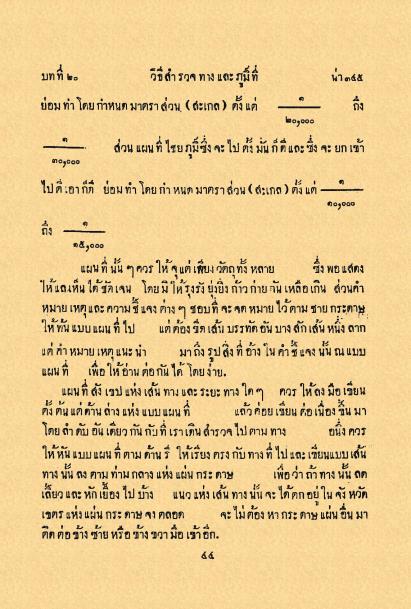 บทที่ ๒๐ วิธีสำรวจทางและภูมิ์ที่ น่า ๓๔๕
ย่อมทำโดยกำหนดมาตราส่วน (สะเกล) ตั้งแต่ ๑ ถึง
๒๐,๐๐๐
๑ ส่วนแผนที่ไชยภูมิ์ซึ่งจะไปตั้งมั่นก็ดีและซึ่งจะยกเข้า
๓๐,๐๐๐
ไปตีเอาก็ดี ย่อมทำโดยกำหนดมาตราส่วน (สะเกล) ตั้งแต่ ๑
๑๐,๐๐๐
ถึง ๑
๑๕,๐๐๐
แผนที่นั้น ๆ ควรให้จุแต่เพียงวัตถุทั้งหลาย ซึ่งพอแสดง
ให้แลเห็นได้ชัดเจน โดยมิให้รุงรังยุ่งยิ่งก้าวก่ายกันเหลือเกิน ส่วนคำ
หมายเหตุและความชี้แจงต่าง ๆ ชอบที่จะจดหมายไว้ตามชายกระดาษ
ให้ทันแบบแผนที่ไป แต่ต้องขีดเส้นบรรทัดอันบางสักเส้นหนึ่งลาก
แต่คำหมายเหตุแนะนำ มาถึงรูปสิ่งที่อ้างในคำชี้แจงนั้นณแบบ
แผนที่ เพื่อให้อ่านต่อกันได้โดยง่าย.
แผนที่สังเขปแห่งเส้นทางและระยะทางใด ๆ ควรให้ลงมือเขียน
ตั้งต้นแต่ด้านล่างแห่งแบบแผนที่ แล้วค่อยเขียนต่อเนื่องขึ้นมา
โดยลำดับอันเดียวกันกับที่เราเดินสำรวจไปตามทาง อนึ่งควร
ให้หันแบบแผนที่ตามด้านรี ให้เรียงตรงกับทางที่ไปและเขียนแบบเส้น
ทางนั้นลงตามท่ามกลางแห่งแผ่นกระดาษ เพื่อว่าถ้าทางนั้นลด
เลี้ยวและหักเยื้องไปบ้าง แนวแห่งเส้นทางนั้นจะได้ตกอยู่ในจังหวัด
เขตรแห่งแผ่นกระดาษจงตลอด จะไม่ต้องหากระดาษแผ่นอื่นมา
ติดต่อข้างซ้ายหรือข้างขวามือเข้าอีก.
๔๔